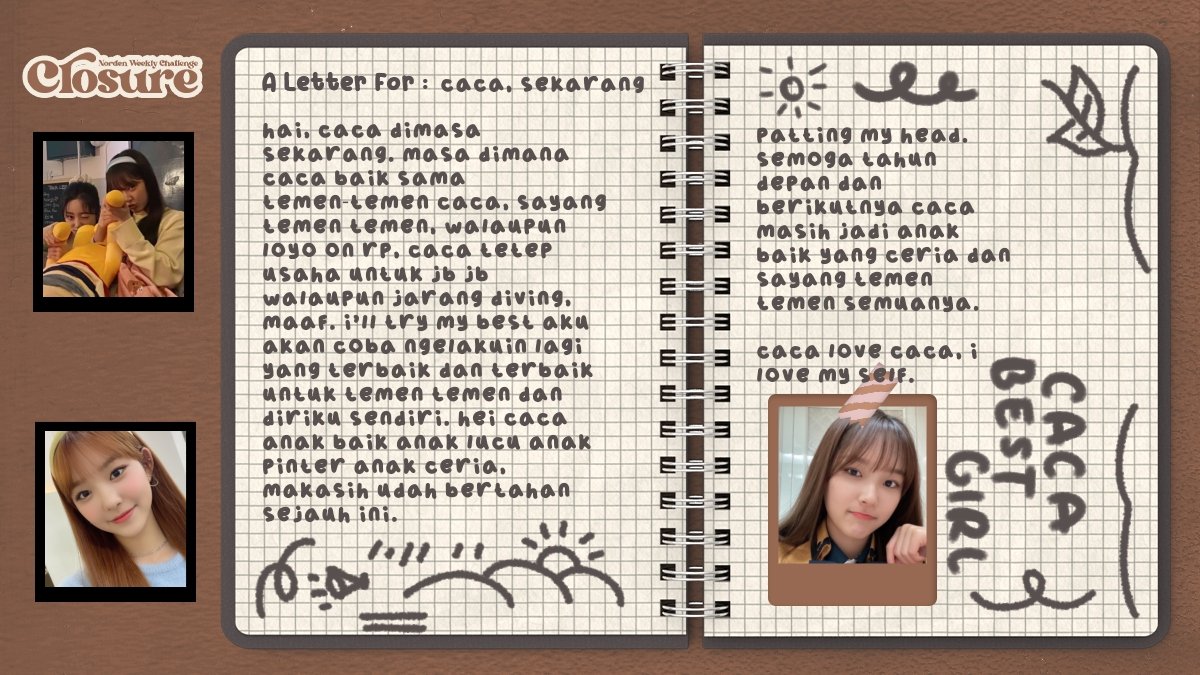 Norden Weekly Challenge
Closure
A Letter For : caca, sekarang
hai, caca dimasa
sekarang. masa dimana
caca baik sama
temen-temen caca, sayang
temen temen, walaupun
loyo on rp, caca tetep
usaha untuk jb jb
walaupun jarang diving,
maaf. i'll try my best aku
akan coba ngelakuin lagi
yang terbaik dan terbaik
untuk temen temen dan
diriku sendiri. hei caca
anak baik anak lucu anak
pinter anak ceria,
makasih udah bertahan
sejauh ini.
patting my head.
semoga tahun
depan dan
berikutnya caca
masih jadi anak
baik yang ceria dan
sayang temen
temen semuanya.
caca love caca, i
love my self.
CACA
BEST
GIRL